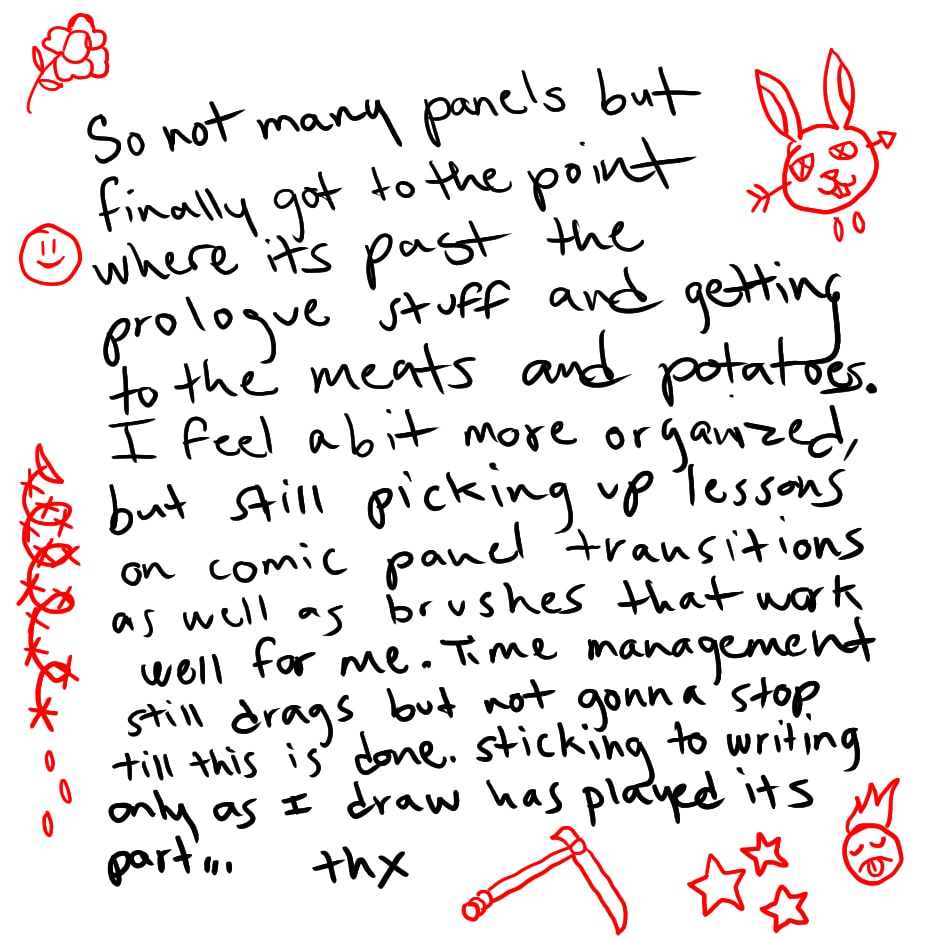 So not many panels but
finally got to the point
where its past the
prologue stuff and getting
to the meats and potatoes.
I feel a bit more organized,
but still picking up lessons
on comic panel transitions
as well as brushes that work
well for me. Time management
still drags but not gonna stop
till this is done. sticking to writing
only as I draw has played its
part... thx